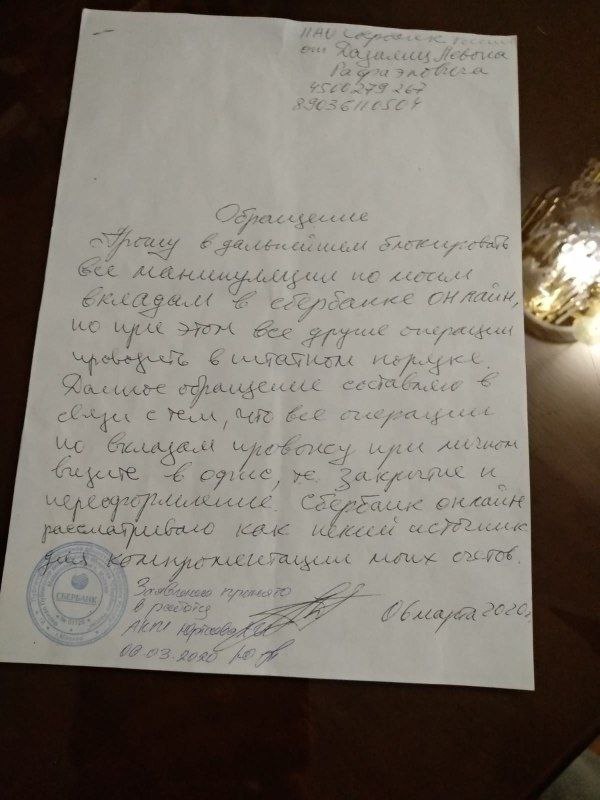 ПАО Сбербанк
от
Рафаэловича
4500279267
89036110504
Обращение
Прошу в дальнейшем блокировать
все манипуляции по моим
вкладам в сбербанке онлайн,
но при этом все другие операции
проводить в штатном порядке.
Данное обращение составляю в
связи с тем, что все операции
по вкладам провожу при личном
визите в офис, те. закрытие и
переоформление. Сбербанк онлайн
рассматриваю как некий источник
для компроментации моих счетов.
СБЕРБАНК
Заявление принято
в работу
06 марта 2020г